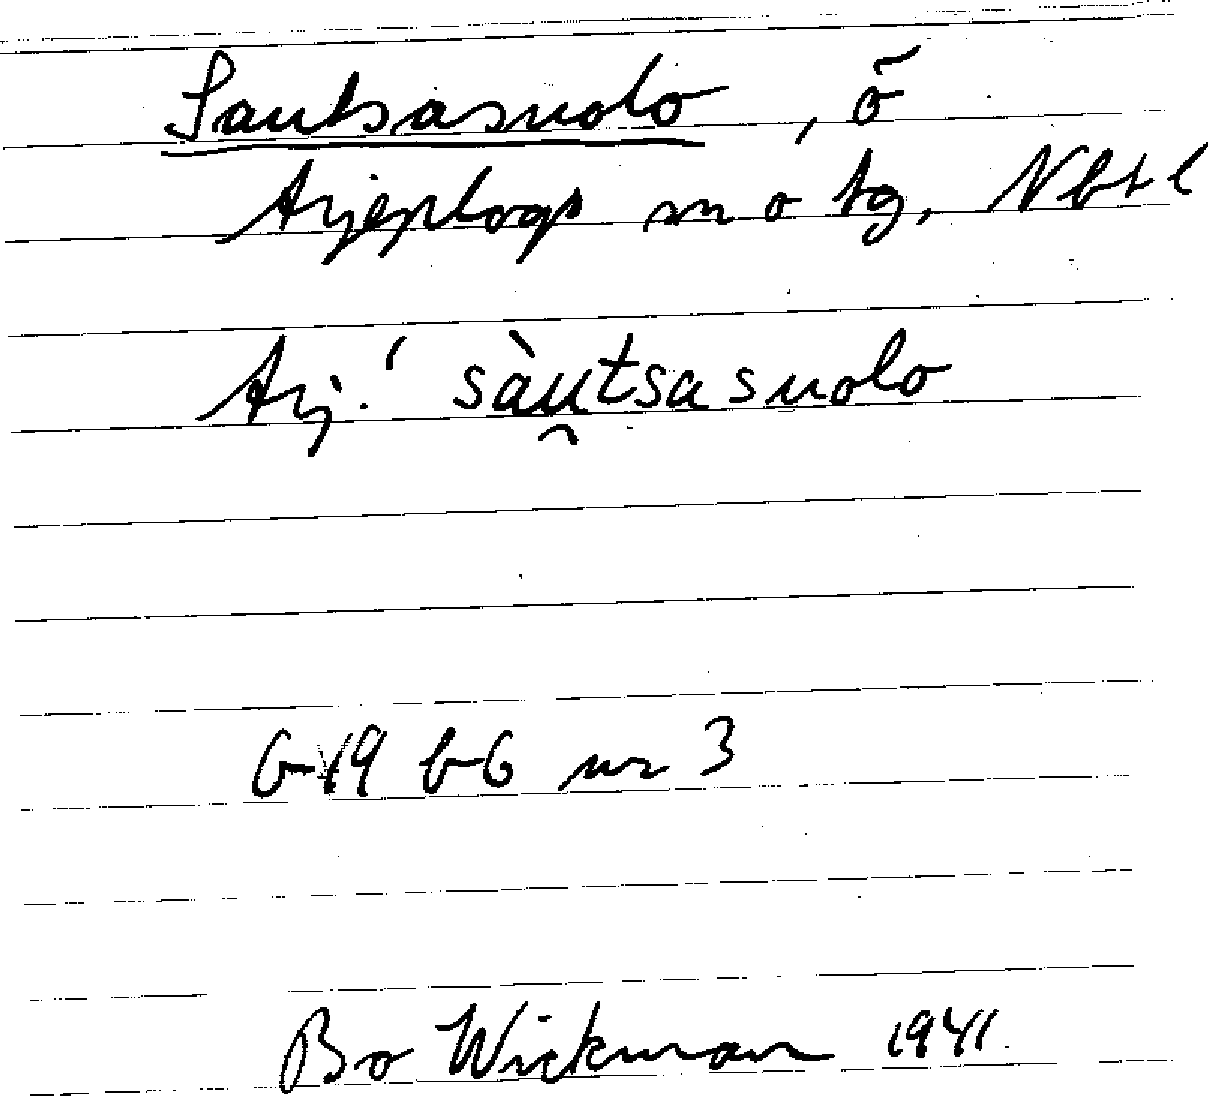 Sautsasuolo, ö
Arjeplogs sn o tg, Nbtl
Arj.' sàu̯tsasuolo
G-19 b-6 nr 3
Bo Wickman 1941